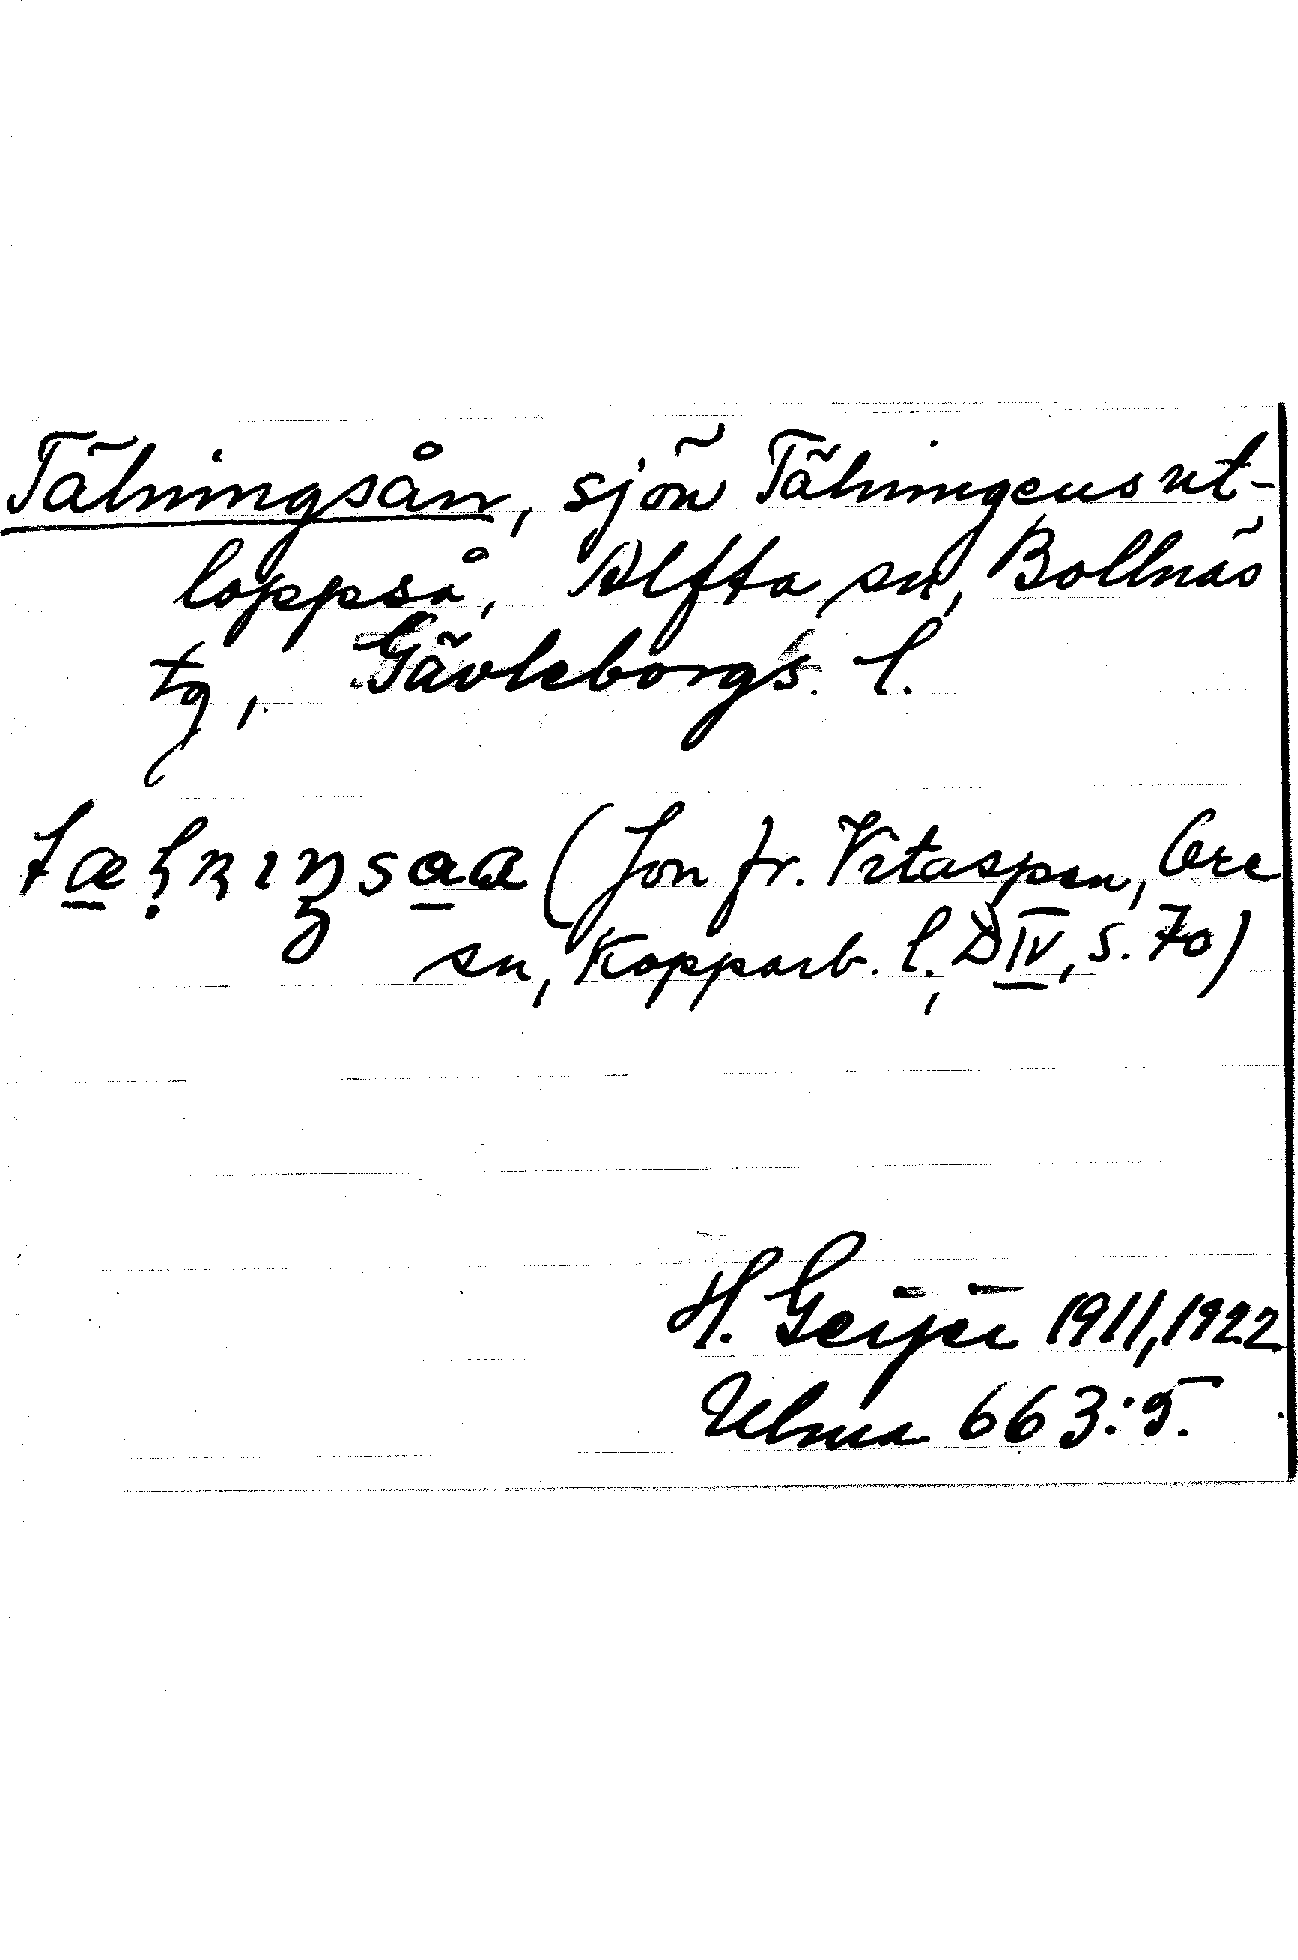 Tälningsån, sjön Tälningens ut-
loppså, Alfta sn, Bollnäs
tg, Gävleborgs l.
(Jon fr. Vitaspen, Ore
sn, Kopparb. l., D IV, s. 70)
H. Geijer 1911, 1922
Ulma 663:5.